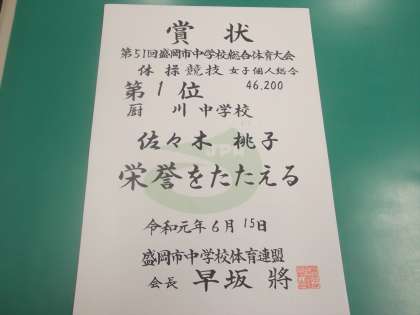 賞状
第51回盛岡市中学校総合体育大会
体操競技 女子個人総合
第1位 46,200
厨川中学校
佐々木 桃子
栄誉をたたえる
令和元年6月15日
盛岡市中学校体育連盟
会長 早坂 將